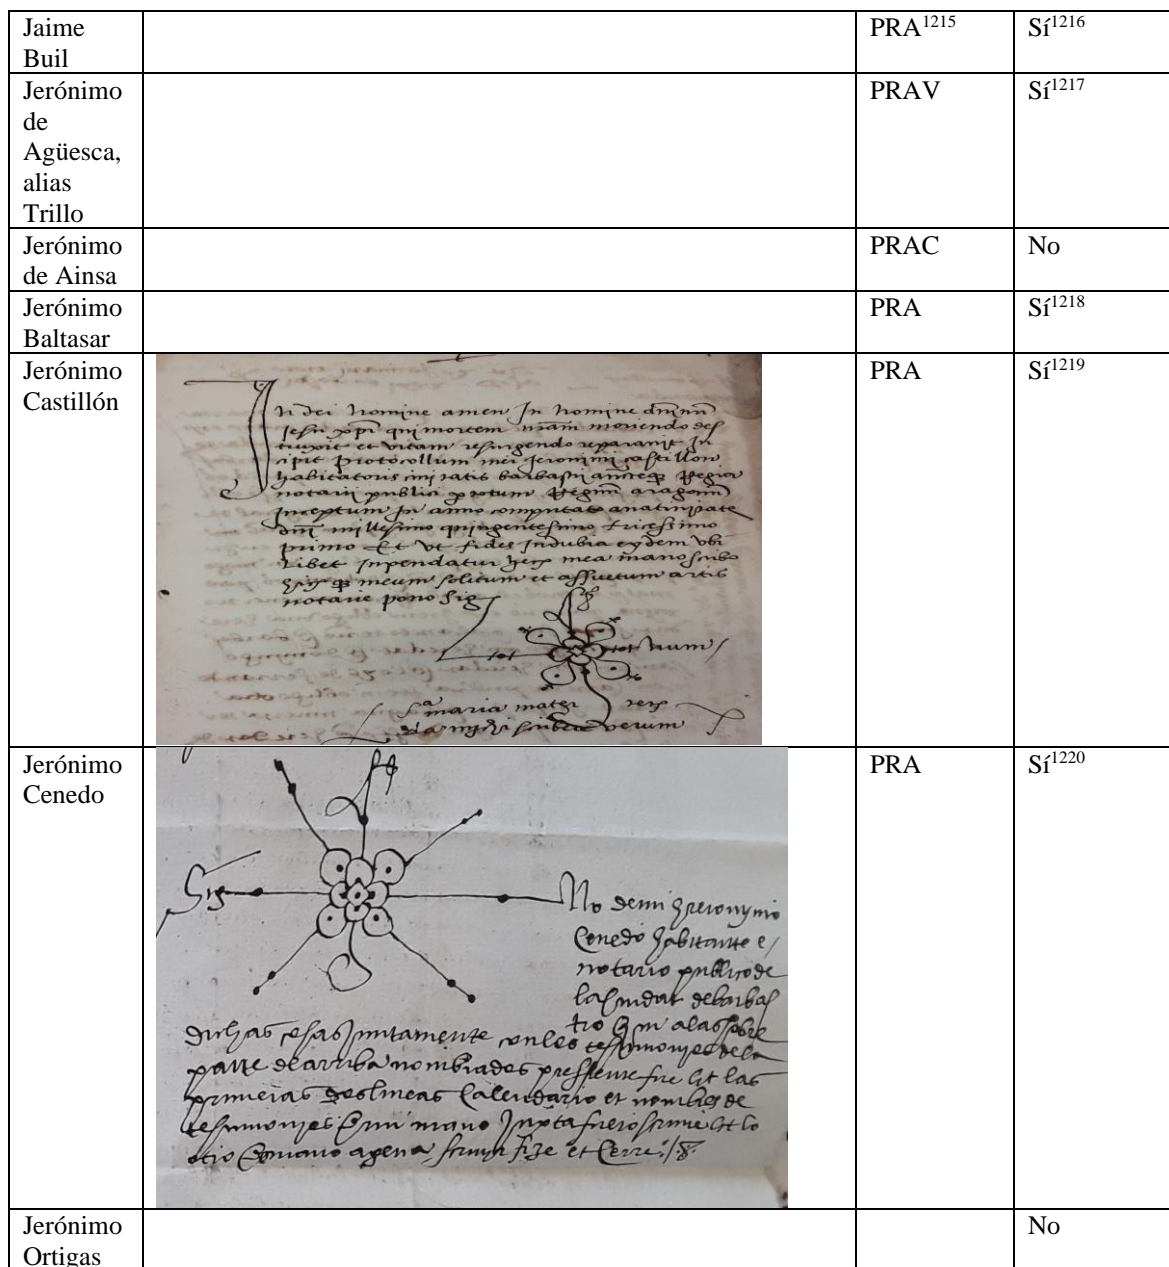 Jaime
Buil
PRA1215
Sí1216
Jerónimo
de
Agüesca,
alias
Trillo
PRAV
Sí1217
Jerónimo
de Ainsa
PRAC
No
Jerónimo
Baltasar
PRA
Sí1218
Jerónimo
Castillón
In dei nomine amen In nomine dni nri
Jesu xpi qui mortem nram moriendo des
truxit et vitam resurgendo reparavit In
cipit protocollum mei Jeronimi castillon
habitatoris civitatis barbastri regia
notarii publici totum Regnu aragonu
Inceptum In anno computato a nativitate
dni millesimo quingentesimo tricesimo
primo Et Vt fides Indubia eydem vbi
libet Inpendatur mea mano scribo
meum solitum et assuetum artis
notarie pono Sig
num
maria mater
verum
PRA
Sí1219
Jerónimo
Cenedo
Sig
No demi Hieronymo
Cenedo habitante e
notario publico de
la ciudat de barbas
tro
dichas cosas Juntamente con los testimonyos dela
parte de arriba nombrados pressente fue Et las
primeras dos lineas Calendario et nombres de
testimonyos mi mano
otro mano agena fize et Cerre
PRA
Sí1220
Jerónimo
Ortigas
No